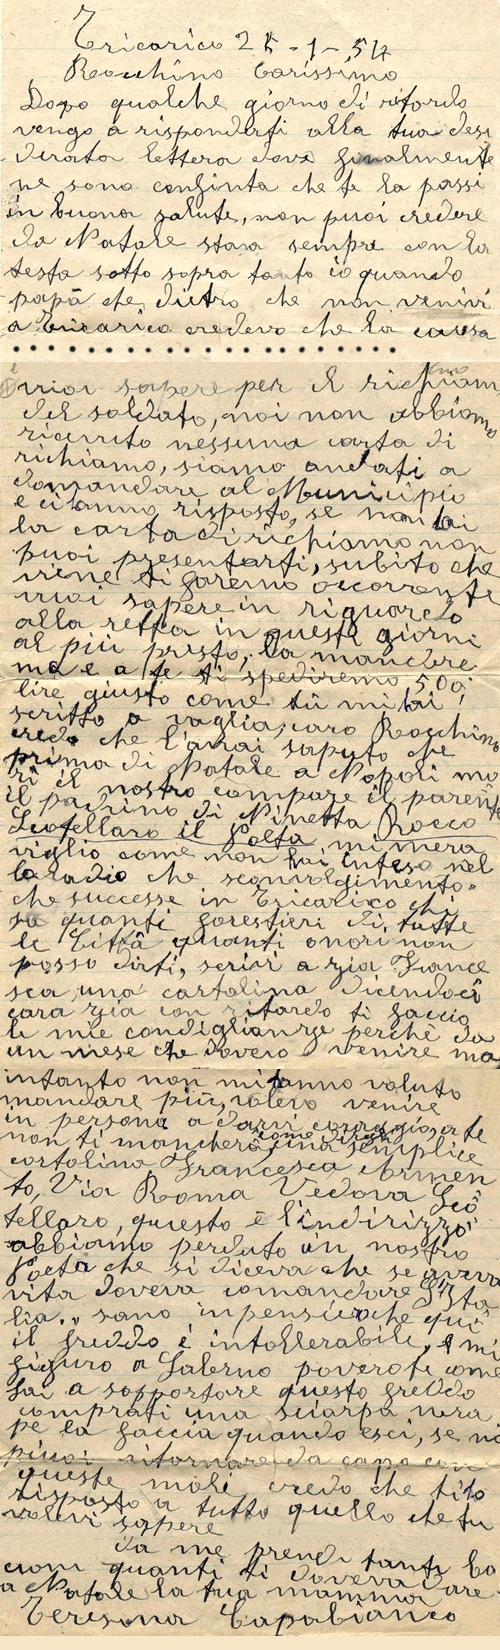 Tricarico 25-1-54
Rocchino Carissimo
Dopo qualche giorno di ritardo
vengo a risponderti alla tua desi
derata lettera dove finalmente
ne sono confinta che te la passi
in buona salute, non puoi credere
da Natale stava sempre con la
testa sotto sopra tanto io quando
papà che dietro che non venivi
a Tricarico credevo che la causa
vuoi sapere per il richiam
del soldato, noi non abbiamo
ricevuto nessuna carta di
richiamo, siamo andati a
domandare al Municipio
e ci anno risposto, se non ai
la carta di richiamo non
puoi presentarti, subito che
viene ti faremo occorrente
vuoi sapere in riguardo
alla retta in questi giorni
al più presto, la mandere
mo e a te ti spediremo 500
lire giusto come tu mi hai
scritto a vaglia, caro Rocchino
credo che l'avrai saputo che
prima di Natale a Napoli mo
rì il nostro compare il parente
il padrino di Ninetta Rocco
Scotellaro il Poeta, mi mera
viglio come non hai inteso nel
la radio che sconvolgimento
che successe in Tricarico chi
sa quanti forestieri di tutte
le Città quanti onori non
posso dirti, scrivi a zia France
sca una cartolina dicendoci
cara zia con ritardo ti faccio
le mie condiglianze perchè da
un mese che dovevo venire ma
intanto non mi anno voluto
mandare più, volevo venire
in persona a darvi coraggio
non ti mancherà una semplice
cartolina Francesca Armen
to, Via Roma Vedova Sco
tellaro, questo è l'indirizzo
abbiamo perduto un nostro
Poeta che si diceva che se aveva
vita doveva comandare l'Ita
lia., sono in pensiero che qui
il freddo è intollerabile, e mi
figuro a Salerno povero te come
fai a sopportare questo freddo
comprati una sciarpa nera,
pe la faccia quando esci, se no
puoi ritornare da capo con
queste mali credo che ti ò
risposto a tutto quello che tu
volevi sapere
da me prendi tanti ba
cioni quanti ti doveva dare
a Natale la tua mamma
Teresona Capobianco